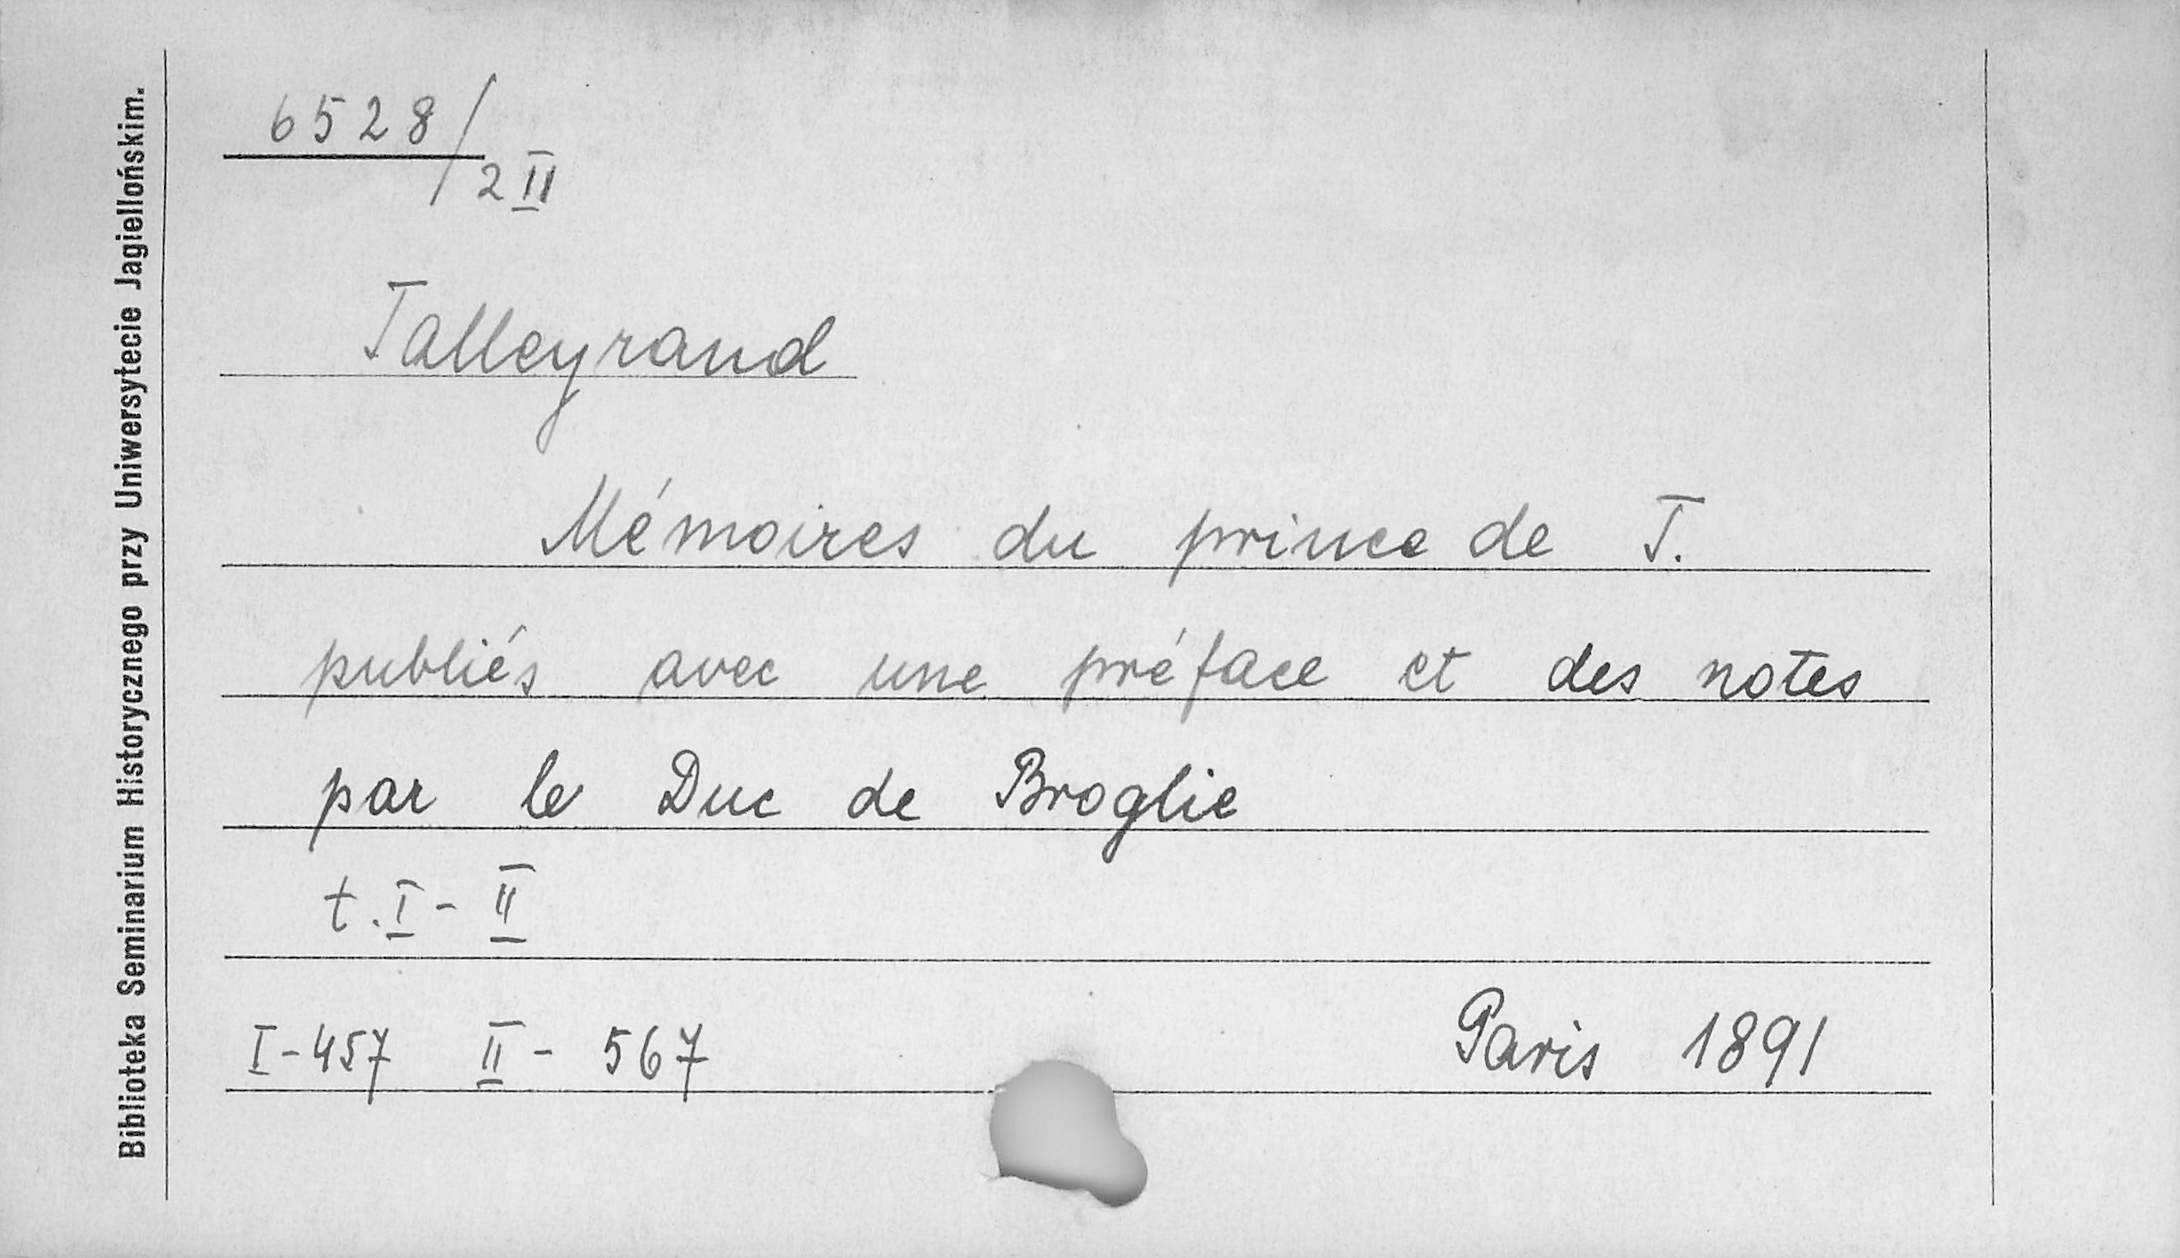 Biblioteka Seminarium Historycznego przy Uniwersytecie Jagiellońskim.
6528/
2 II
Talleyrand
Mémoires du prince de T.
publiés avec une préface et des notes
par le Duc de Broglie
t. I - II
I - 457 II - 567 Paris 1891